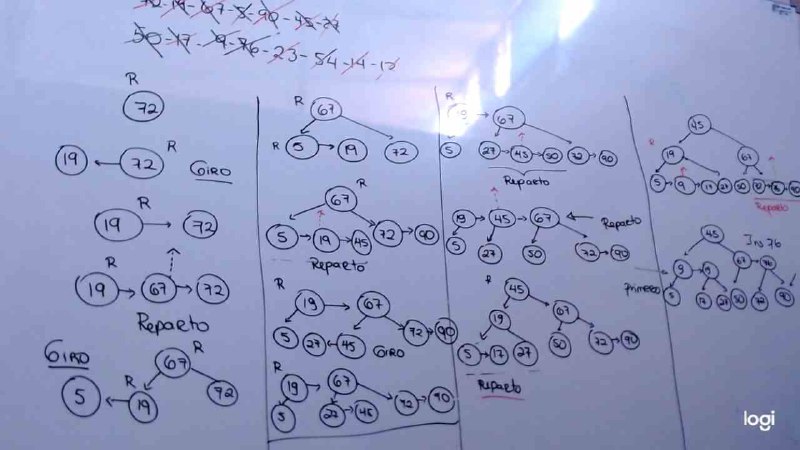 72-19-67-5-90-45-27
50-17-9-76-23-54-14-12
R
72
19 72 R
GIRO
R
19 72
R
19 67 72
Reparto
GIRO
67 R
5 R 19 72
R 67
R 5 19 72
R
67
5 19 45 72 90
Reparto
R
19 67
5 27 45 72 90
GIRO
R
19 67
5 27 45 72 90
R
19 67
5 27 45 50 72 90
Reparto
19 45 67 Reparto
5 27 50 72 90
R
45
19 67
5 17 27 50 72 90
Reparto
45
R
19 67
5 9 17 27 50
Reparto
45 Ins 76
9 67 76
Primero
5 17 27 50 72 90
logi